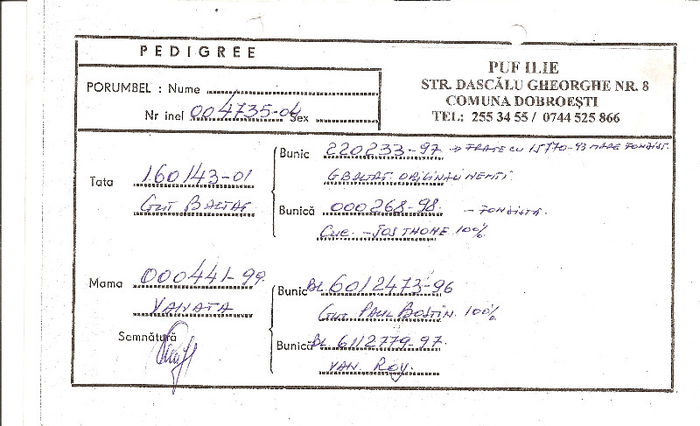 PEDIGREE
PUF ILIE
STR. DASCĂLU GHEORGHE NR. 8
COMUNA DOBROEȘTI
TEL: 255 34 55 / 0744 525 866
PORUMBEL : Nume
Nr inel 004735-04 Sex
Bunic 220233-97 → FRATE CU 15770-93 MARE FONDIST.
Tata 160143-01
G BALTAT ORIGINALI NEMTI.
GUT BALTAT
Bunică 000268-98. - FONDISTA.
Cue. - JOS THONE 100%
Mama 000441-99.
Bunic BL 6012473-96
VANATA
Gut. PAUL BOSTIN 100%
Semnătură
Bunică BL 6112779-97.
VAN. ROY.